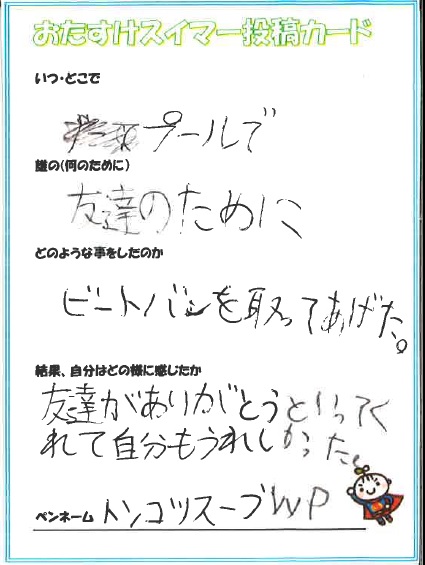 おたすけスイマー投稿カード
いつ・どこで
プールで
誰の(何のために)
友達のために
どのような事をしたのか
ビートバンを取ってあげた。
結果、自分はどの様に感じたか
友達がありがとうといってく
れて自分もうれしかった。
ペンネーム トンコツスープWP